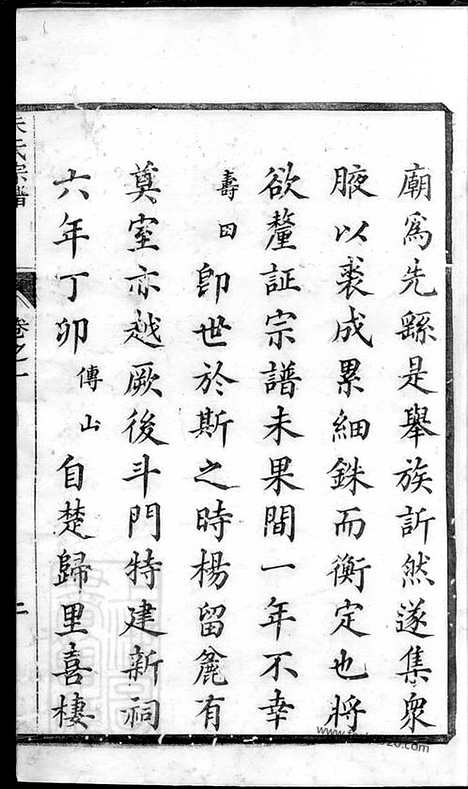 廟爲先繇是舉族訢然遂集衆
腋以裘成累細銖而衡定也將
欲釐証宗譜未果間一年不幸
壽田卽世於斯之時楊留麄有
奠室亦越厥後斗門特建新祠
六年丁卯傳山自楚歸里喜棲
朱氏宗譜
卷之一
二